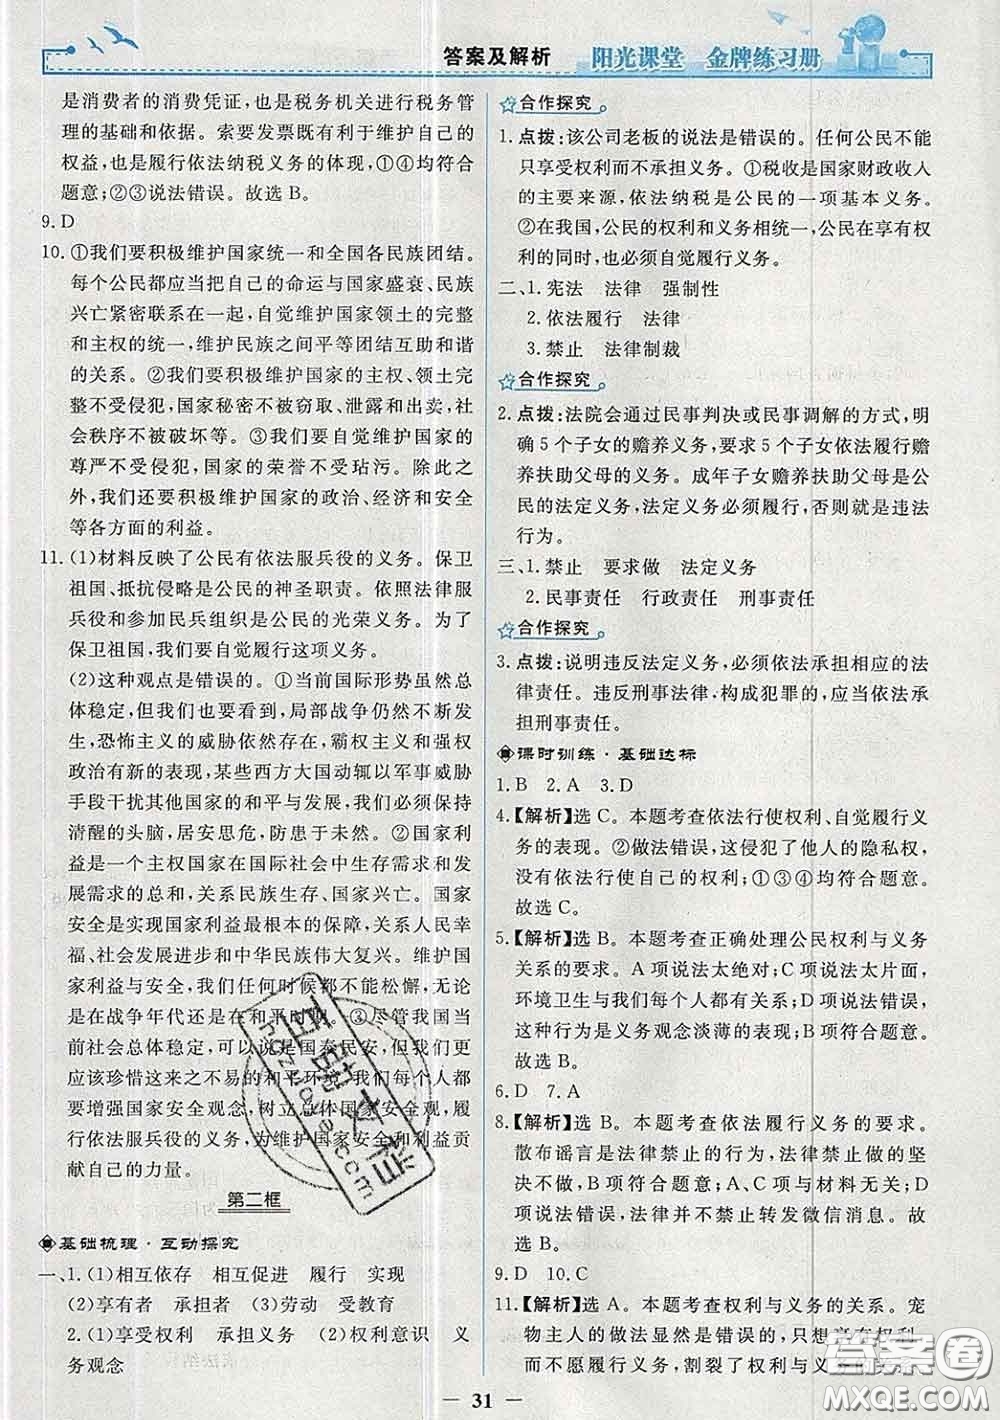 答案及解析
阳光课堂 金牌练习册
是消费者的消费凭证，也是税务机关进行税务管
理的基础和依据。索要发票既有利于维护自己的
权益，也是履行依法纳税义务的体现，①④均符合
题意；②③说法错误。故选B。
9. D
10. ①我们要积极维护国家统一和全国各民族团结。
每个公民都应当把自己的命运与国家盛衰、民族
兴亡紧密联系在一起，自觉维护国家领土的完整
和主权的统一，维护民族之间平等团结互助和谐
的关系。②我们要积极维护国家的主权、领土完
整不受侵犯，国家秘密不被窃取、泄露和出卖，社会
秩序不被破坏等。③我们要自觉维护国家的
尊严不受侵犯，国家的荣誉不受玷污。除此之
外，我们还要积极维护国家的政治、经济和安全
等各方面的利益。
11. (1)材料反映了公民有依法服兵役的义务。保卫
祖国、抵抗侵略是公民的神圣职责。依照法律服
兵役和参加民兵组织是公民的光荣义务。为了
保卫祖国，我们要自觉履行这项义务。
(2)这种观点是错误的。①当前国际形势虽然总
体稳定，但我们也要看到，局部战争仍然不断发
生，恐怖主义的威胁依然存在，霸权主义和强权
政治有新的表现，某些西方大国动辄以军事威胁
手段干扰其他国家的和平与发展，我们必须保持
清醒的头脑，居安思危，防患于未然。②国家利
益是一个主权国家在国际社会中生存需求和发
展需求的总和，关系民族生存、国家兴亡。国家
安全是实现国家利益最根本的保障，关系人民幸
福、社会发展进步和中华民族伟大复兴。维护国
家利益与安全，我们任何时候都不能松懈，无论
是在战争年代还是在和平时期。③尽管我国当
前社会总体稳定，可以说是国泰民安，但我们更
应该珍惜这来之不易的和平环境，我们每个人都
要增强国家安全观念，树立总体国家安全观，履
行依法服兵役的义务，为维护国家安全和利益贡
献自己的力量。
第二框
基础梳理·互动探究
一、1.(1)相互依存 相互促进 履行 实现
(2)享有者 承担者 (3)劳动 受教育
2.(1)享受权利 承担义务 (2)权利意识 义
务观念
合作探究
1. 点拨：该公司老板的说法是错误的。任何公民不能
只享受权利而不承担义务。①税收是国家财政收入
的主要来源，依法纳税是公民的一项基本义务。
②在我国，公民的权利和义务相统一，公民在享有权
利的同时，也必须自觉履行义务。
二、1.宪法 法律 强制性
2.依法履行 法律
3.禁止 法律制裁
合作探究
2. 点拨：法院会通过民事判决或民事调解的方式，明
确5个子女的赡养义务，要求5个子女依法履行赡
养扶助父母的义务。成年子女赡养扶助父母是公
民的法定义务，法定义务必须履行，否则就是违法
行为。
三、1.禁止 要求做 法定义务
2.民事责任 行政责任 刑事责任
合作探究
3. 点拨：说明违反法定义务，必须依法承担相应的法
律责任。违反刑事法律，构成犯罪的，应当依法承
担刑事责任。
课时训练·基础达标
1. B 2. A 3. D
4.【解析】选C。本题考查依法行使权利、自觉履行义
务的表现。②做法错误，这侵犯了他人的隐私权，
没有依法行使自己的权利；①③④均符合题意。
故选C。
5.【解析】选B。本题考查正确处理公民权利与义务
关系的要求。A项说法太绝对；C项说法太片面，
环境卫生与我们每个人都有关系；D项说法错误，
这种行为是义务观念淡薄的表现；B项符合题意。
故选B。
6. D 7. A
8.【解析】选B。本题考查依法履行义务的要求。
散布谣言是法律禁止的行为，A项与材料不符；C
项说法错误，散布谣言要依法承担法律责任；D
项说法错误，法律并不禁止转发微信消息。
9. D 10. C
11.【解析】选A。本题考查权利与义务的关系。宠
物主人的做法显然是错误的，只想享有权利，
而不愿履行义务，割裂了权利与义务的关系
31
互助文档
答案圈
MXQE.COM